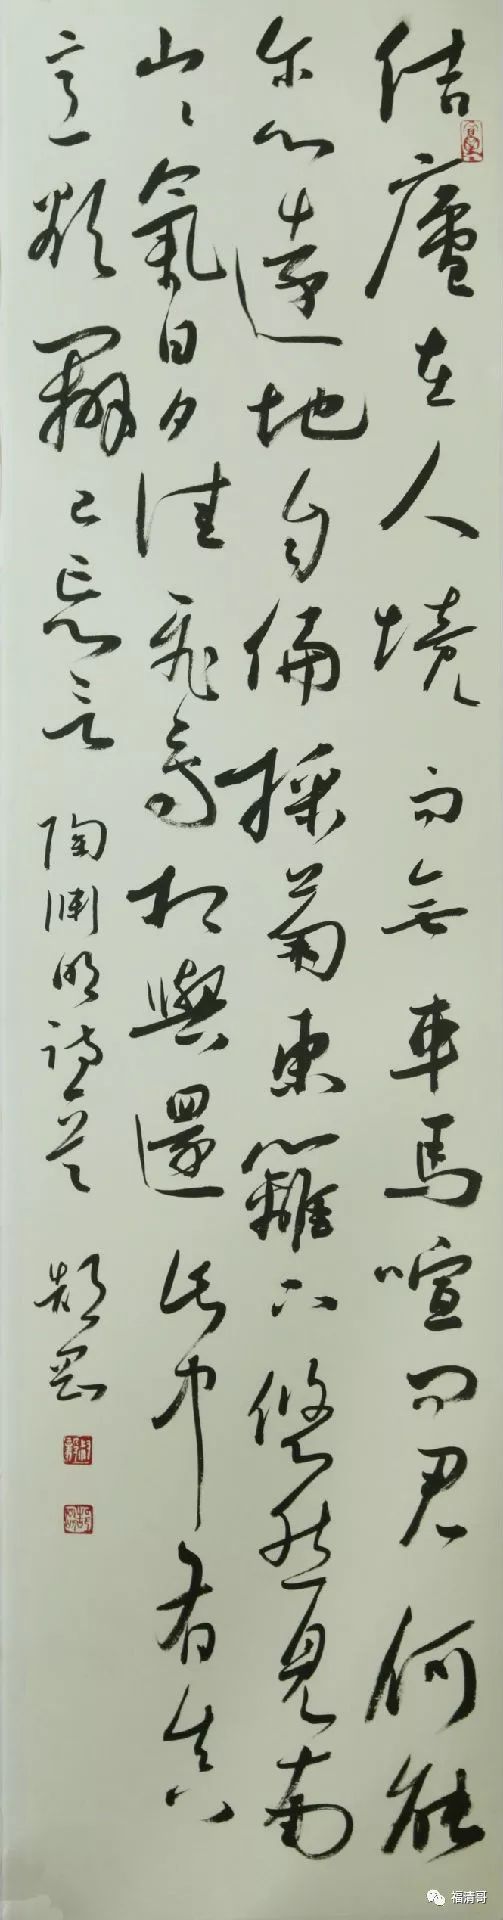 结庐在人境而无车馬喧问君何能
尔心遠地自偏採菊東籬下悠然见南
山山氣日夕佳飛鸟相與還此中有真
意欲辩已忘言 陶渊明诗一首
福清哥